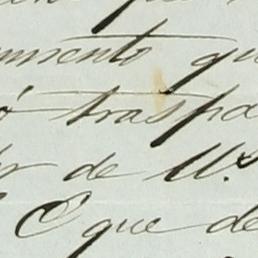 miento qu
ó traspa
or de V.s
O que de